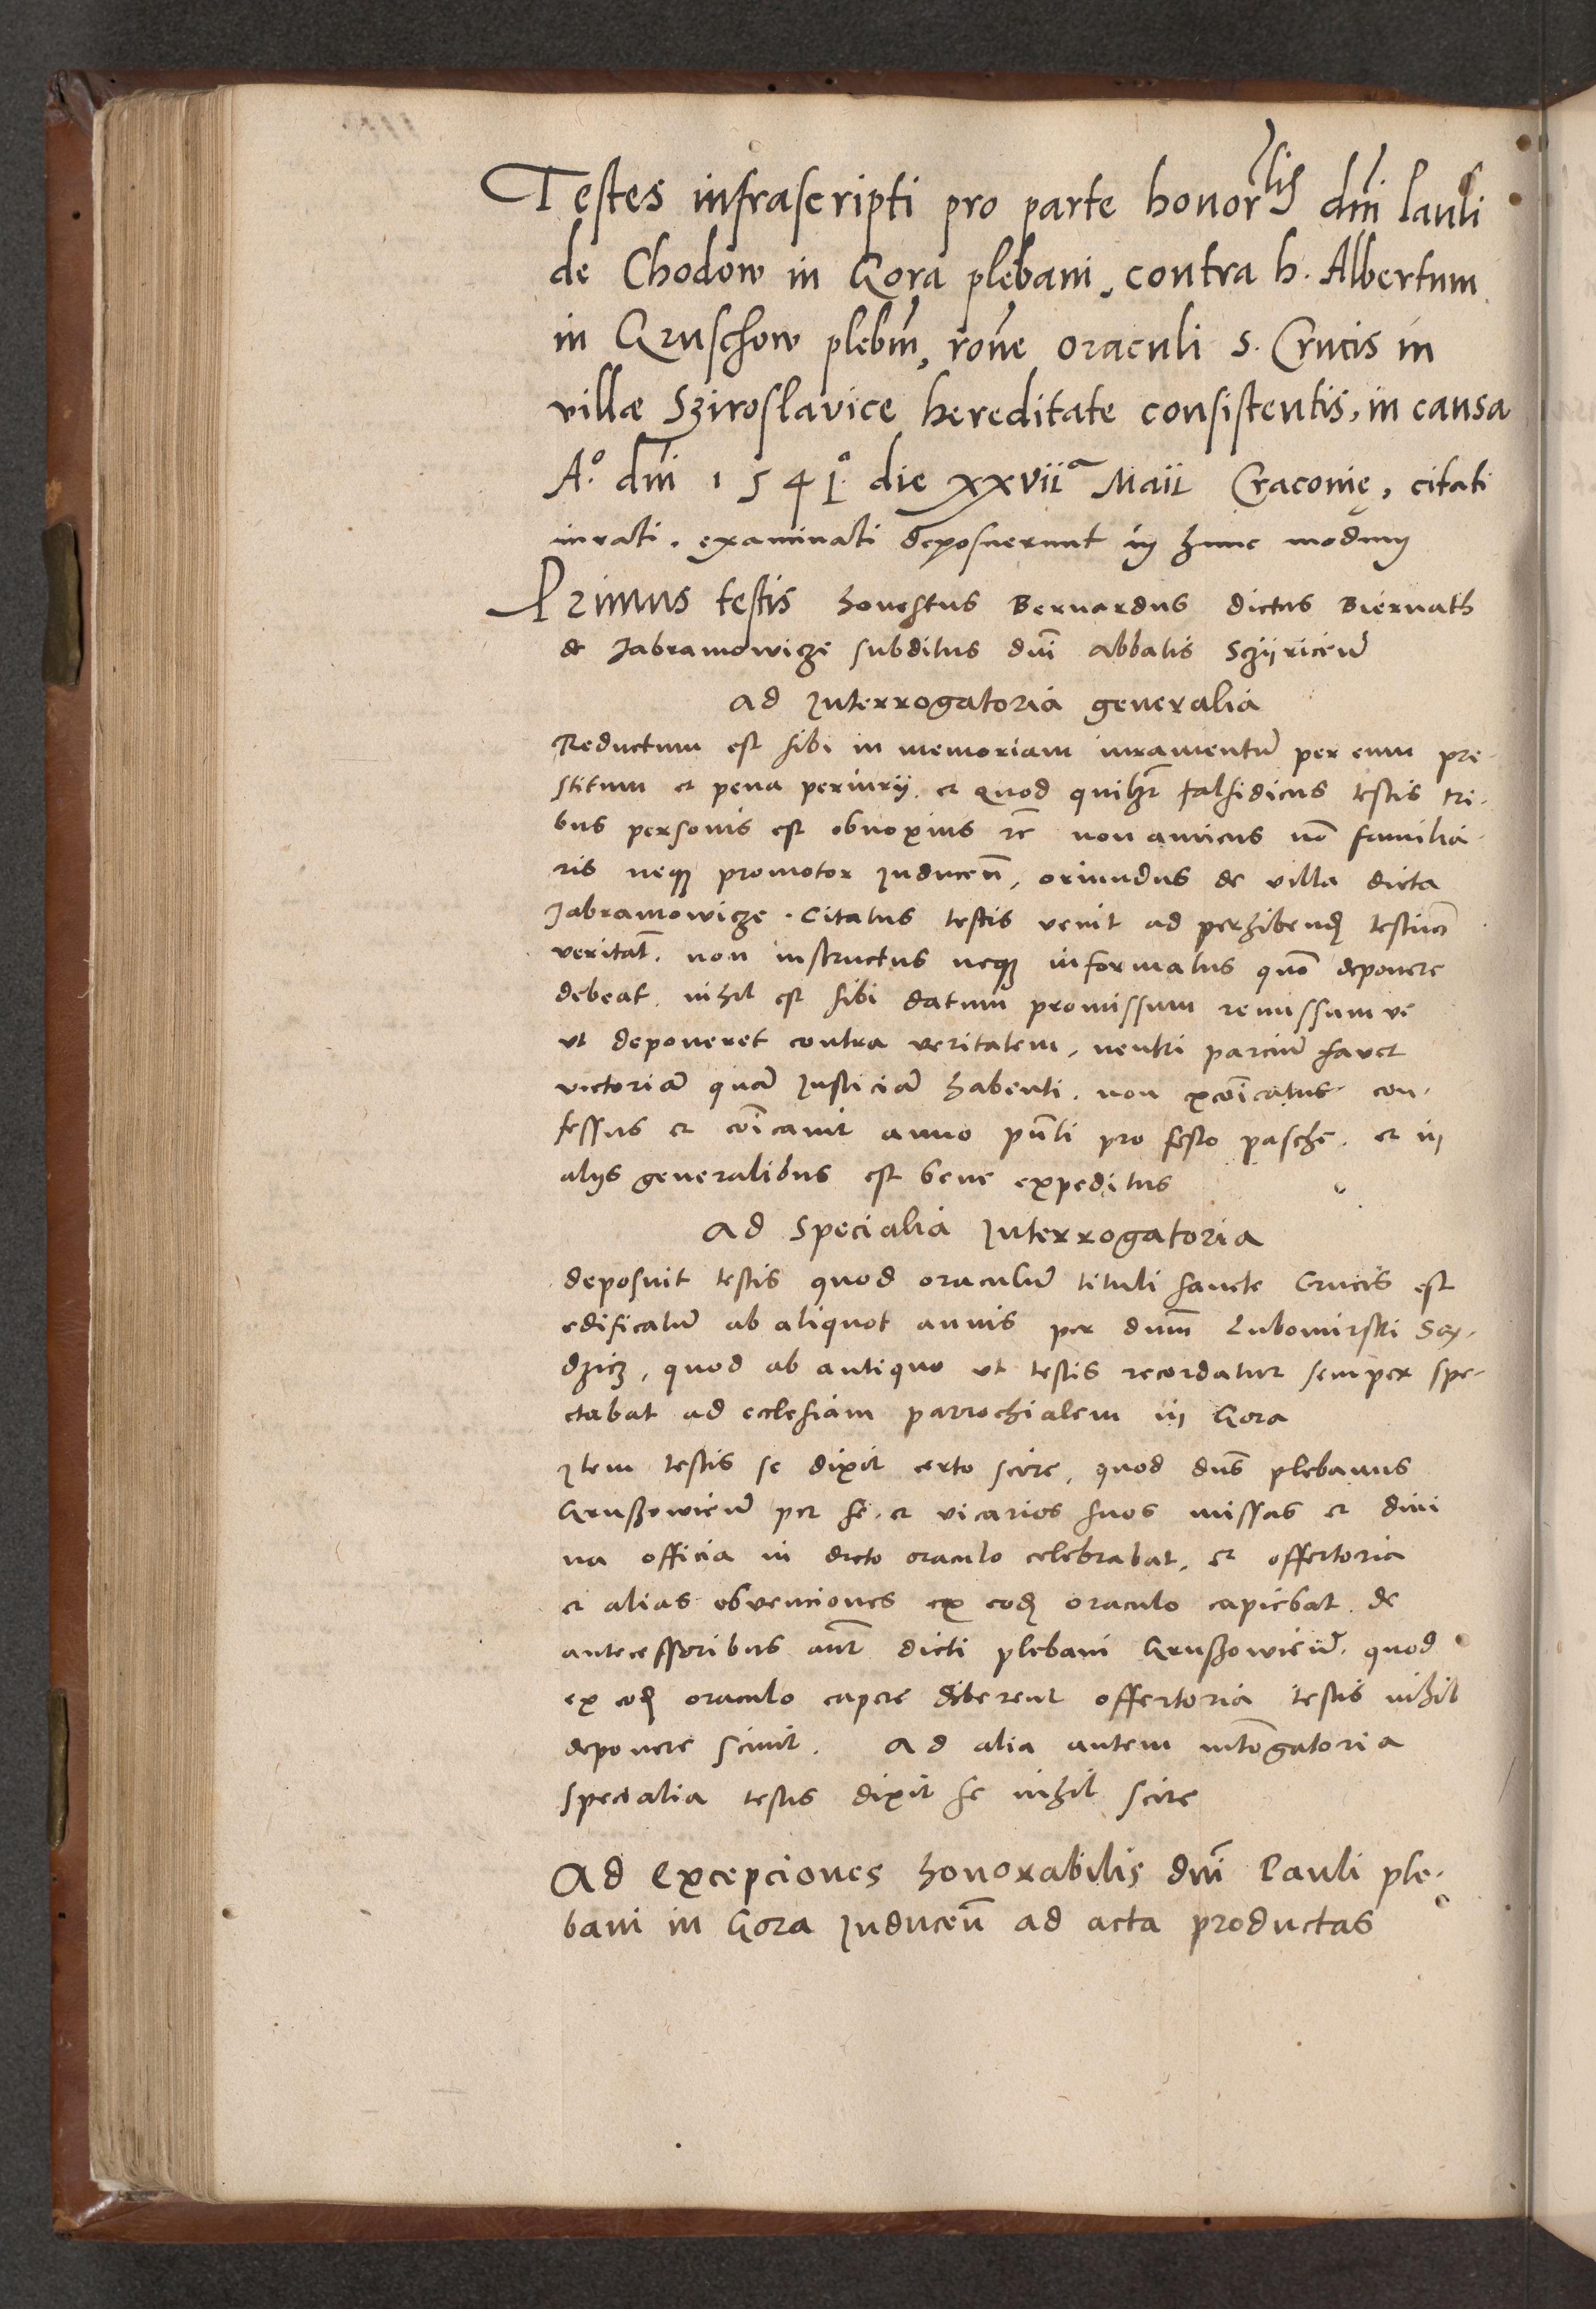 Testes infrascripti pro parte honorlis dni Pauli
de Chodow in Gora plebani, contra h. Albertum
in Gruschow plebm, rone oraculi s. Crucis in
villæ Sziroslavice hereditate consistentis, in causa
A.° dni 1541.° die xxvii.a Maii Cracovię, citati
iurati. examinati deposuerunt in hunc modum
Primus testis honestus Bernardus dictus Biernath
de Jabramowicze subditus dni abbatis Sczÿricen
Ad Interrogatoria generalia
Reductum est sibi in memoriam iuramentu per eum pre-
stitum et pena periurij. et quod quilzt falsidicus testis tri-
bus personis est obnoxius rc non amicus no familia-
ris neqz promotor Inducen, oriundus de villa dicta
Jabramowicze. Citatus testis venit ad perhibend testim
veritat. non instructus neqz informatus quo deponere
debeat. nihil est sibi datum promissum remissum ve
ut deponeret contra veritatem, neutri parciu favet
victoria qua Justicia habenti. non excoicatus con-
fessus et coicavit anno pnti pro festo pasche. et in
alijs generalibus est bene expeditus
Ad Specialia Interrogatoria
deposuit testis quod oraculu tituli sancte Crucis est
edificatu ab aliquot annis per dnm Lubomirski
quod ab antiquo ut testis recordatur semper spe-
ctabat ad ecclesiam parrochialem in Gora
Item testis se dixit certo scire, quod dns plebanus
Grußowien per se. et vicarios suos missas et divi
na officia in dicto oraculo celebrabat, et offertoria
et alias obvenciones ex eod oraculo capiebat. de
antecessoribus aut dicti plebani Grußowien. quod
ex eod oraculo capere deberent offertoria testis nihil
deponere scivit. Ad alia autem introgatoria
specialia testis dixit se nihil scire
Ad Excepciones honorabilis dni Pauli ple-
bani in Gora Inducen ad acta productas